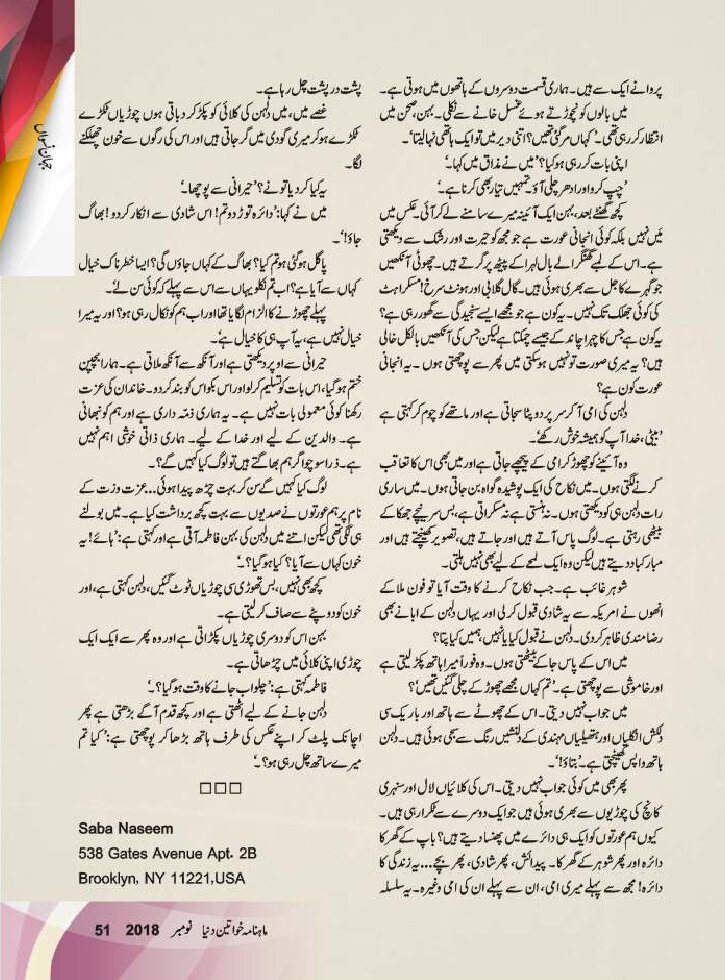 پروانے ایک سے ہیں۔ ہماری قسمت دوسروں کے ہاتھوں میں ہوتی ہے۔
میں بالوں کو نچوڑتے ہوئے غسل خانے سے نکلی۔ بہن، صحن میں
انتظار کر رہی تھی۔ 'کہاں مر گئی تھیں؟ اتنی دیر میں تو ایک ہاتھی نہا لیتا'۔
اپنی بات کر رہی ہو کیا؟' میں نے مذاق میں کہا۔'
'چپ کرو اور ادھر چلی آؤ۔ تمہیں تیار بھی کرنا ہے'۔
کچھ گھنٹے بعد، بہن ایک آئینہ میرے سامنے لے کر آئی۔ عکس میں
میَں نہیں بلکہ کوئی انجانی عورت ہے جو مجھ کو حیرت اور رشک سے دیکھتی
ہے۔ اس کے لمبے گھنگرالے بال لہرا کے پیٹھ پر گرتے ہیں۔ چھوٹی آنکھیں
جو گہرے کاجل سے بھری ہوئی ہیں۔ گال گلابی اور ہونٹ سرخ! مسکراہٹ
کی کوئی جھلک تک نہیں۔ یہ کون ہے جو مجھے ایسے سنجیدگی سے گھور رہی ہے؟
یہ کون ہے جس کا چہرا چاند کے جیسے چمکتا ہے لیکن جس کی آنکھیں بالکل خالی
ہیں؟ یہ میری صورت تو نہیں ہو سکتی میں پھر سے پوچھتی ہوں۔ یہ انجانی
عورت کون ہے؟
دلہن کی امی آ کر سر پر دوپٹا سجاتی ہے اور ماتھے کو چوم کر کہتی ہے
'بیٹی، خدا آپ کو ہمیشہ خوش رکھے'۔
وہ آئینے کو چھوڑ کر امی کے پیچھے جاتی ہے اور میں بھی اس کا تعاقب
کرنے لگتی ہوں۔ میں نکاح کی ایک پوشیدہ گواہ بن جاتی ہوں۔ میں ساری
رات دلہن ہی کو دیکھتی ہوں۔ نہ ہنستی ہے نہ مسکراتی ہے، بس سر نیچے جھکا کے
بیٹھی رہتی ہے۔ لوگ پاس آتے ہیں اور جاتے ہیں، تصویر کھینچتے ہیں اور
مبارکباد دیتے ہیں لیکن وہ ایک لمحے کے لیے بھی نہیں ہلتی۔
شوہر غائب ہے۔ جب نکاح کرنے کا وقت آیا تو فون ملا کے
انھوں نے امریکہ سے یہ شادی قبول کر لی اور یہاں دلہن کے ابا نے بھی
رضا مندی ظاہر کر دی۔ دلہن نے قبول کیا یا نہیں، ہمیں کیا پتا؟
میں اس کے پاس جا کے بیٹھتی ہوں۔ وہ فوراً میرا ہاتھ پکڑ لیتی ہے
اور خاموشی سے پوچھتی ہے۔ 'تم کہاں مجھے چھوڑ کے چلی گئیں تھیں'؟
میں جواب نہیں دیتی۔ اس کے چھوٹے سے ہاتھ اور باریک سی
دلکش انگلیاں اور ہتھیلیاں مہندی کے دلنشیں رنگ سے سجی ہوئی ہیں۔ دلہن
ہاتھ واپس کھینچتی ہے۔ 'بتاؤ!'۔
پھر بھی میں کوئی جواب نہیں دیتی۔ اس کی کلائیاں لال اور سنہری
کانچ کی چوڑیوں سے بھری ہوئی ہیں جو ایک دوسرے سے ٹکرا رہی ہیں۔
کیوں ہم عورتوں کو ایک ہی دائرے میں پھنسا دیتے ہیں؟ باپ کے گھر کا
دائرہ اور پھر شوہر کے گھر کا۔ پیدائش، پھر شادی، پھر بچے... یہ زندگی کا
دائرہ! مجھ سے پہلے میری امی، ان سے پہلے ان کی امی وغیرہ۔ یہ سلسلہ
پشت در پشت چل رہا ہے۔
غصے میں، میں دلہن کی کلائی کو پکڑ کر دباتی ہوں چوڑیاں ٹکڑے
ٹکڑے ہو کر میری گودی میں گر جاتی ہیں اور اس کی رگوں سے خون چھلکنے
لگا۔
یہ کیا کر دیا تو نے؟' حیرانی سے پوچھا۔'
میں نے کہا: 'دائرہ توڑ دو تم! اس شادی سے انکار کر دو! بھاگ
جاؤ!'۔
پاگل ہو گئی ہو تم کیا؟ بھاگ کے کہاں جاؤں گی؟ ایسا خطرناک خیال
کہاں سے آیا ہے؟ اب تم نکلو یہاں سے اس سے پہلے کہ کوئی سن لے'۔
پہلے چھوڑنے کا الزام لگایا تھا اور اب ہم کو نکال رہی ہو؟ اور یہ میرا
خیال نہیں ہے، یہ آپ ہی کا خیال ہے'۔
حیرانی سے اوپر دیکھتی ہے اور آنکھ سے آنکھ ملاتی ہے۔ ہمارا بچپن
ختم ہو گیا، اس بات کو تسلیم کر لو اور اس بکواس کو بند کر دو۔ خاندان کی عزت
رکھنا کوئی معمولی بات نہیں ہے۔ یہ ہماری ذمہ داری ہے اور ہم کو نبھانی
ہے۔ والدین کے لیے اور خدا کے لیے۔ ہماری ذاتی خوشی اہم نہیں
ہے۔ ذرا سوچو اگر ہم بھاگتے ہیں تو لوگ کیا کہیں گے؟۔
لوگ کیا کہیں گے سن کر بہت چڑھ پیدا ہوئی... عزت و زت کے
نام پر ہم عورتوں نے صدیوں سے بہت کچھ برداشت کیا ہے۔ میں بولنے
ہی لگی تھی لیکن اتنے میں دلہن کی بہن فاطمہ آتی ہے اور کہتی ہے: 'ہائے! یہ
خون کہاں سے آیا؟ کیا ہو گیا؟۔'
کچھ بھی نہیں، بس تھوڑی سی چوڑیاں ٹوٹ گئیں، دلہن کہتی ہے، اور
خون کو دوپٹے سے صاف کر لیتی ہے۔
بہن اس کو دوسری چوڑیاں پکڑاتی ہے اور وہ پھر سے ایک ایک
چوڑی اپنی کلائی میں چڑھاتی ہے۔
فاطمہ کہتی ہے: 'چلو اب جانے کا وقت ہو گیا؟۔'
دلہن جانے کے لیے اٹھتی ہے اور کچھ قدم آگے بڑھتی ہے پھر
اچانک پلٹ کر اپنے عکس کی طرف ہاتھ بڑھا کر پوچھتی ہے: 'کیا تم
میرے ساتھ چل رہی ہو؟۔'
□□□
Saba Naseem
538 Gates Avenue Apt. 2B
Brooklyn, NY 11221,USA
جہان نسواں
ماہنامہ خواتین دنیا نومبر 2018 51